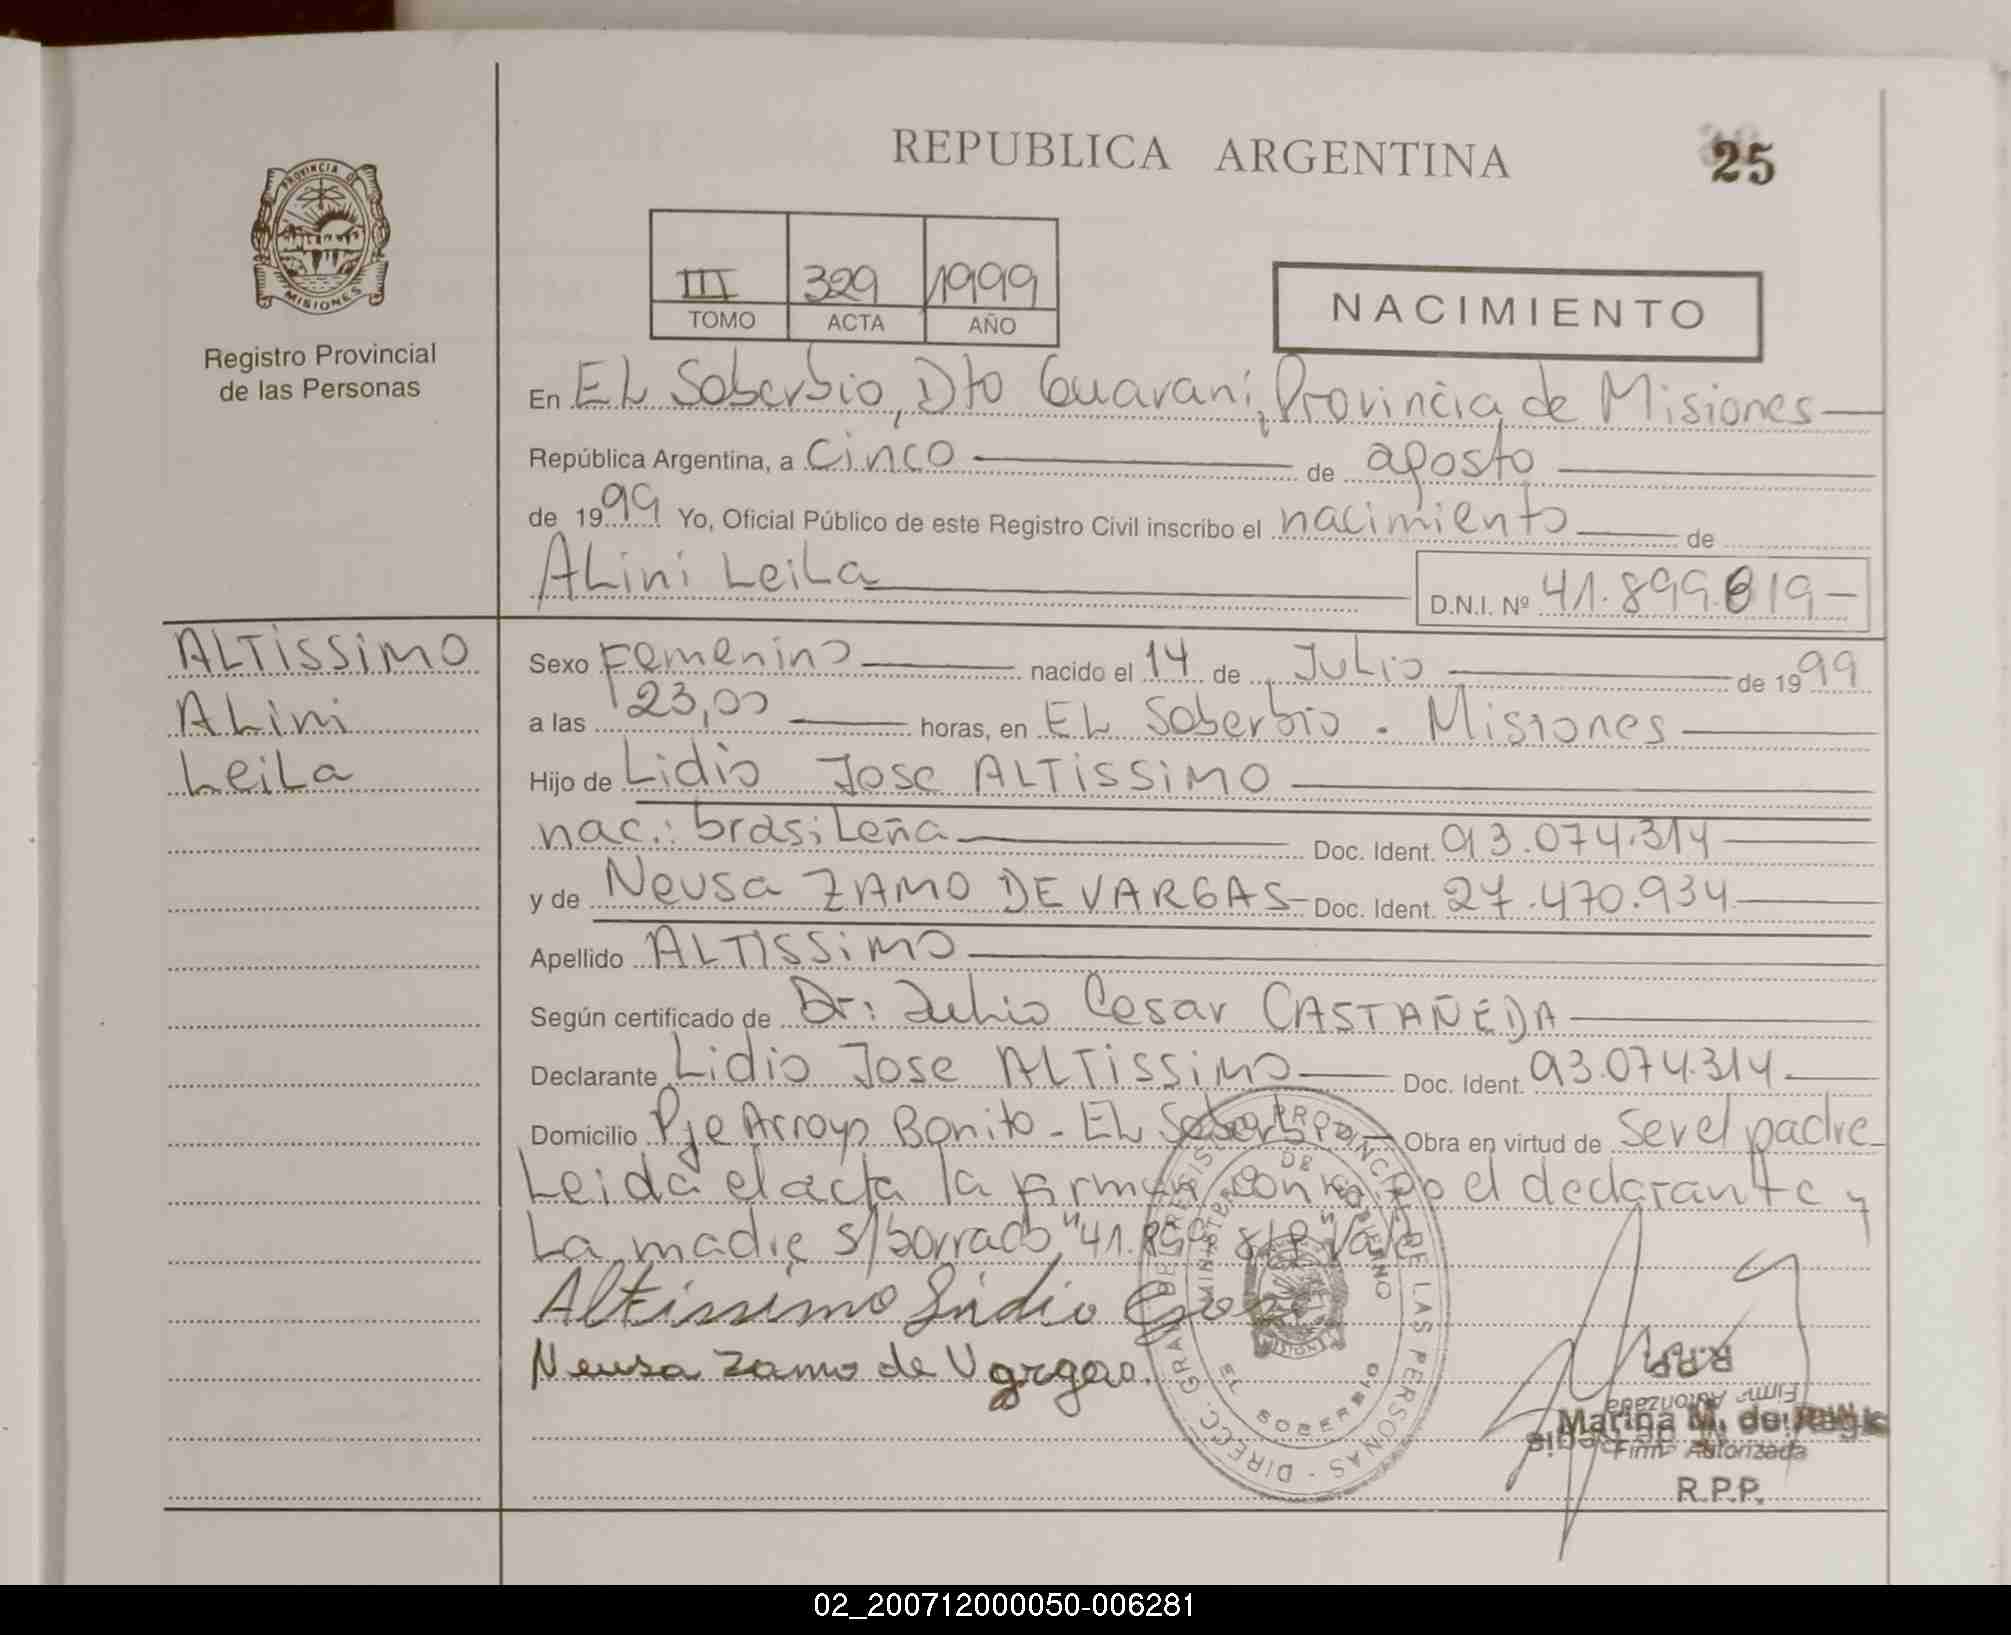 REPUBLICA ARGENTINA
25
PROVINCIA DE
MISIONES
Registro Provincial
de las Personas
III 329 1999
TOMO ACTA AÑO
NACIMIENTO
En EL Soberbio, Dto Guaraní, Provincia de Misiones
República Argentina, a cinco de agosto
de 1999 Yo, Oficial Público de este Registro Civil inscribo el nacimiento de
ALini LeiLa D.N.I. Nº 41.899.819
ALTISSIMO
ALini
LeiLa
Sexo Femenino nacido el 14 de Julio de 1999
a las 23,00 horas, en EL Soberbio - Misiones
Hijo de Lidio Jose ALTISSIMO
nac.: brasiLeña Doc. Ident. 93.074.314
y de Neusa ZAMO DE VARGAS Doc. Ident. 27.470.934
Apellido ALTISSIMO
Según certificado de Dr: Julio Cesar CASTAÑEDA
Declarante Lidio Jose ALTISSIMO Doc. Ident. 93.074.314
Domicilio Pje Arroyo Bonito - EL Soberbio Obra en virtud de ser el padre
Leida el acta la firman conmigo el declarante y
La madre s/borrado "41.899.819" Vale
Altissimo Lidio
Neusa Zamo de Vargas
DIRECC. GRAL. DE REGISTRO PROVINCIAL DE LAS PERSONAS
MINISTERIO DE GOBIERNO
EL SOBERBIO
R.P.P.
Firma Autorizada
Marina M. de
Firma Autorizada
R.P.P.
02_200712000050-006281